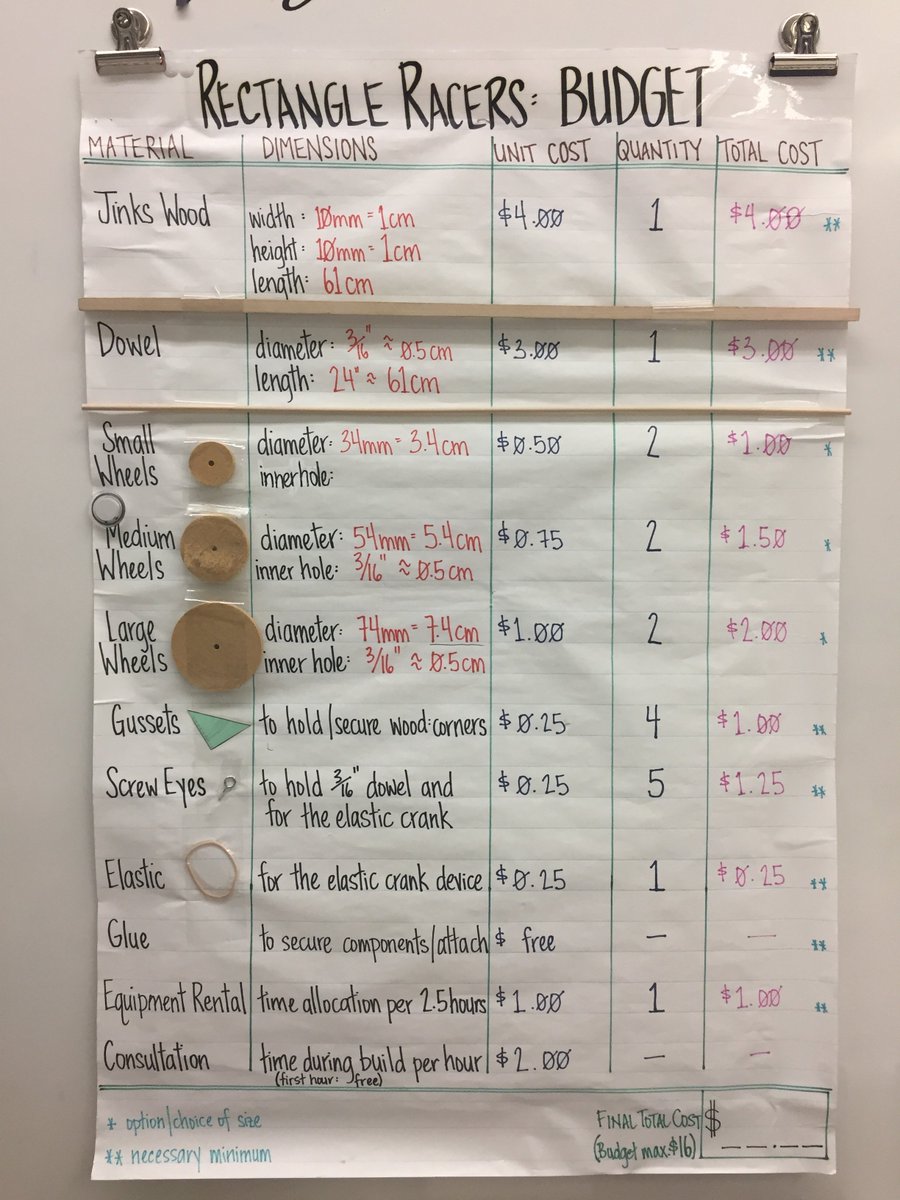 RECTANGLE RACERS: BUDGET
MATERIAL DIMENSIONS UNIT COST QUANTITY TOTAL COST
Jinks Wood width: 10mm = 1cm $4.00 1 $4.00 **
height: 10mm = 1cm
length: 61cm
Dowel diameter: 3/16" ≈ 0.5cm $3.00 1 $3.00 **
length: 24" ≈ 61cm
Small diameter: 34mm = 3.4cm $0.50 2 $1.00 *
Wheels innerhole:
Medium diameter: 54mm = 5.4cm $0.75 2 $1.50 *
Wheels inner hole: 3/16" ≈ 0.5cm
Large diameter: 74mm = 7.4cm $1.00 2 $2.00 *
Wheels inner hole: 3/16" ≈ 0.5cm
Gussets to hold/secure wood:corners $0.25 4 $1.00 **
Screw Eyes to hold 3/16" dowel and $0.25 5 $1.25 **
for the elastic crank
Elastic for the elastic crank device $0.25 1 $0.25 **
Glue to secure components/attach $ free — — **
Equipment Rental time allocation per 2.5hours $1.00 1 $1.00 **
Consultation time during build per hour $2.00 — —
(first hour: free)
* option/choice of size FINAL TOTAL COST $
** necessary minimum (Budget max:$16) __ __.__ __